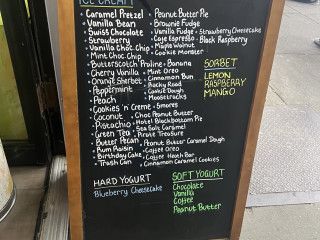 ICE CREAM
• Caramel Pretzel
• Vanilla Bean
• Swiss Chocolate
• Strawberry
• Vanilla Choc. Chip
• Mint Choc. Chip
• Butterscotch Praline
• Cherry Vanilla
• Orange Sherbet
• Peppermint
• Peach
• Cookies n' Creme
• Coconut
• Pistachio
• Green Tea
• Butter Pecan
• Rum Raisin
• Birthday Cake
• Trash Can
• Peanut Butter Pie
• Brownie Fudge
• Vanilla Fudge • Strawberry Cheesecake
• Cafe Espresso • Black Raspberry
• Maple Walnut
• Cookie Monster
• Banana
• Mint Oreo
• Cinnamon Bun
• Rocky Road
• Cookie Dough
• Moosetracks
• Smores
• Choc Peanut Butter
• Hotel Blackbottom Pie
• Sea Salt Caramel
• Pirate Treasure
• Peanut Butter Caramel Dough
• Coffee Oreo
• Coffee Heath Bar
• Cinnamon Caramel Cookies
SORBET
LEMON
RASPBERRY
MANGO
HARD YOGURT
Blueberry Cheesecake
SOFT YOGURT
Chocolate
Vanilla
Coffee
Peanut Butter